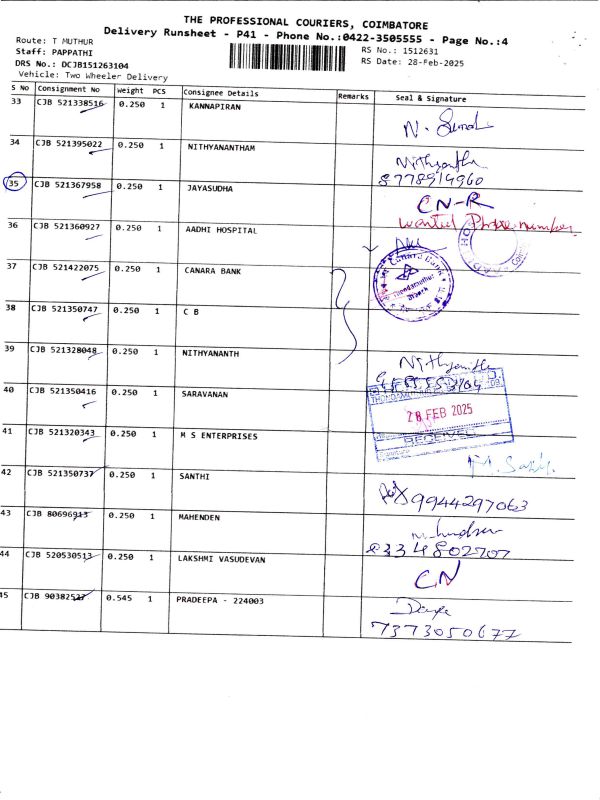 THE PROFESSIONAL COURIERS, COIMBATORE
Delivery Runsheet - P41 - Phone No.:0422-3505555 - Page No.:4
Route: T MUTHUR
RS No.: 1512631
Staff: PAPPATHI
RS Date: 28-Feb-2025
DRS No.: DCJB151263104
Vehicle: Two Wheeler Delivery
S No Consignment No Weight PCS Consignee Details Remarks Seal & Signature
33 CJB 521338516 0.250 1 KANNAPIRAN
34 CJB 521395022 0.250 1 NITHYANANTHAM
8778919960
35 CJB 521367958 0.250 1 JAYASUDHA CN-R
wanted Phone number
36 CJB 521360927 0.250 1 AADHI HOSPITAL
37 CJB 521422075 0.250 1 CANARA BANK
Canara Bank
Thondamuthur
Branch
38 CJB 521350747 0.250 1 C B
39 CJB 521328048 0.250 1 NITHYANANTH
40 CJB 521350416 0.250 1 SARAVANAN
28 FEB 2025
41 CJB 521320343 0.250 1 M S ENTERPRISES
RECEIVED
Signature
42 CJB 521350737 0.250 1 SANTHI
9944297063
43 CJB 80696913 0.250 1 MAHENDEN
8334802707
44 CJB 520530513 0.250 1 LAKSHMI VASUDEVAN CN
45 CJB 90382527 0.545 1 PRADEEPA - 224003
7373050677